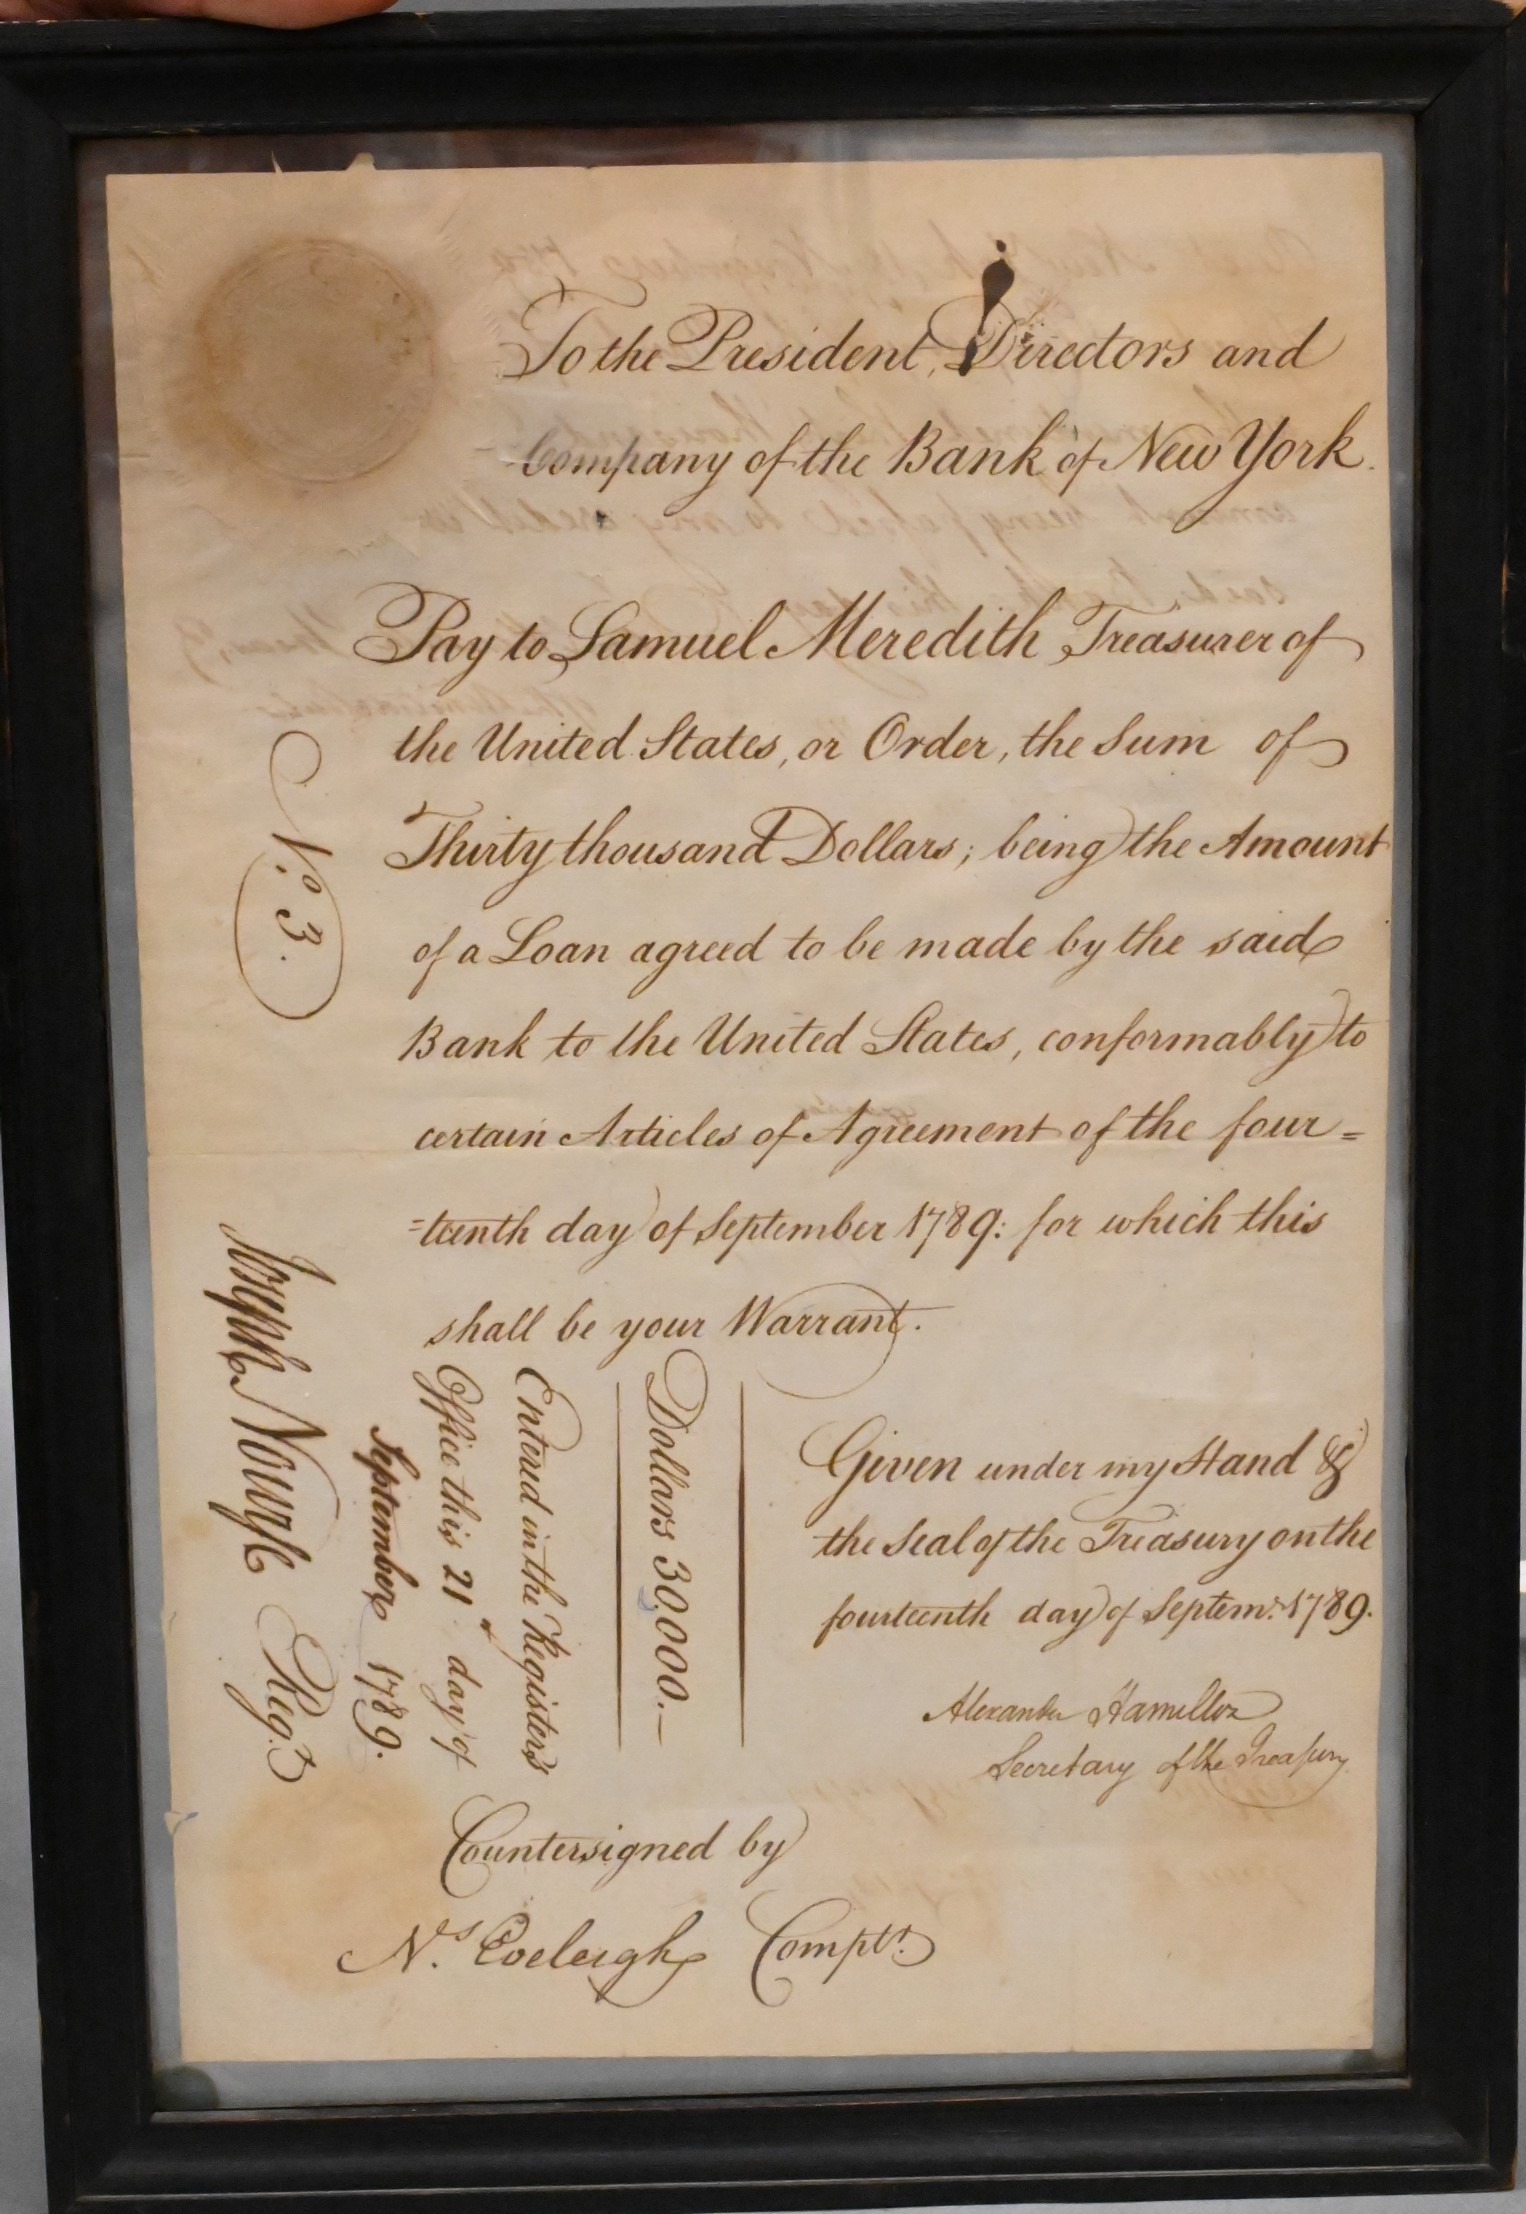 To the President, Directors and
Company of the Bank of New York.
Pay to Samuel Meredith Treasurer of
the United States, or Order, the Sum of
Thirty thousand Dollars; being the Amount
of a Loan agreed to be made by the said
Bank to the United States, conformably to
certain Articles of Agreement of the four=
=teenth day of September 1789: for which this
shall be your Warrant.
Given under my Hand &
the Seal of the Treasury on the
fourteenth day of Septemr. 1789.
Alexander Hamilton
Secretary of the Treasury
Dollars 30.000.—
Entered in the Register's
Office this 21st day of
September 1789.
Joseph Nourse Reg.
No. 3.
Countersigned by
Ns. Eveleigh Comptr.